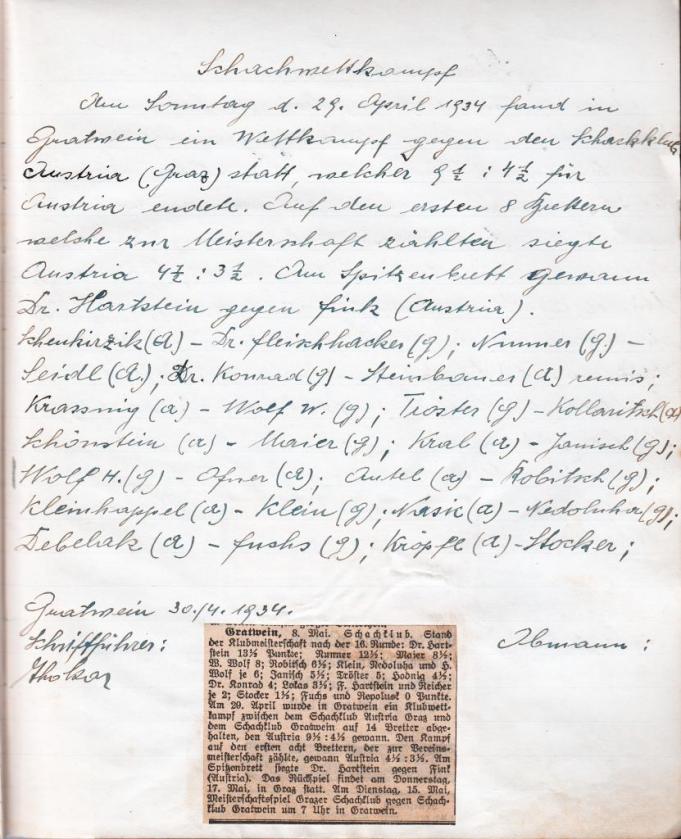 Schachwettkampf
Am Sonntag d. 29. April 1934 fand in
Gratwein ein Wettkampf gegen den Schachklub
Austria (Graz) statt, welcher 9½ : 4½ für
Austria endete. Auf den ersten 8 Brettern
welche zur Meisterschaft zählten siegte
Austria 4½ : 3½. Am Spitzenbrett gewann
Dr. Hartstein gegen Fink (Austria).
Schenkirzik (A) – Dr. Fleischhacker (G); Nummer (G.) –
Seidl (A.); Dr. Konrad (G) – Steinbauer (A) remis;
Krassnig (A) – Wolf W. (G); Tröster (G) – Kollaritsch (A)
Schönstein (A) – Maier (G); Kral (A) – Janisch (G);
Wolf H. (G) – Ofner (A); Antel (A) – Robitsch (G);
Kleinhappel (A) – Klein (G); Nasic (A) – Nedoluha (G);
Debelak (A) – Fuchs (G); Kröpfl (A) – Stocker;
Gratwein 30./4. 1934.
Schriftführer: Obmann:
Gratwein, 8. Mai. Schachklub. Stand
der Klubmeisterschaft nach der 16. Runde: Dr. Hart-
stein 13½ Punkte; Nummer 12½; Maier 8½;
W. Wolf 8; Robitsch 6½; Klein, Nedoluha und H.
Wolf je 6; Janisch 5½; Tröster 5; Hodnig 4½;
Dr. Konrad 4; Lokas 3½; F. Hartstein und Reicher
je 2; Stocker 1½; Fuchs und Repolusk 0 Punkte.
Am 29. April wurde in Gratwein ein Klubwett-
kampf zwischen dem Schachklub Austria Graz und
dem Schachklub Gratwein auf 14 Bretter abge-
halten, den Austria 9½ : 4½ gewann. Den Kampf
auf den ersten acht Brettern, der zur Vereins-
meisterschaft zählte, gewann Austria 4½ : 3½. Am
Spitzenbrett siegte Dr. Hartstein gegen Fink
(Austria). Das Rückspiel findet am Donnerstag,
17. Mai, in Graz statt. Am Dienstag, 15. Mai,
Meisterschaftsspiel Grazer Schachklub gegen Schach-
klub Gratwein um 7 Uhr in Gratwein.